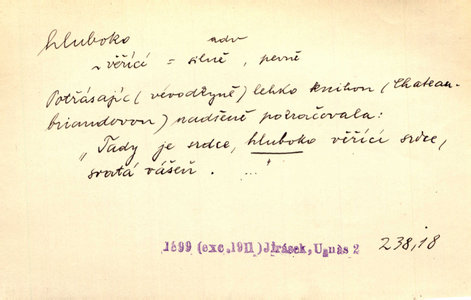 hluboko adv
~ věřící = silně, pevně
Potřásajíc (vévodkyně) lehko knihou (Chateau-
briandovou) nadšeně pokračovala:
„Tady je srdce, hluboko věřící srdce,
svatá vášeň. ...
1899 (exc. 1911) Jirásek, U nás 2 238,18